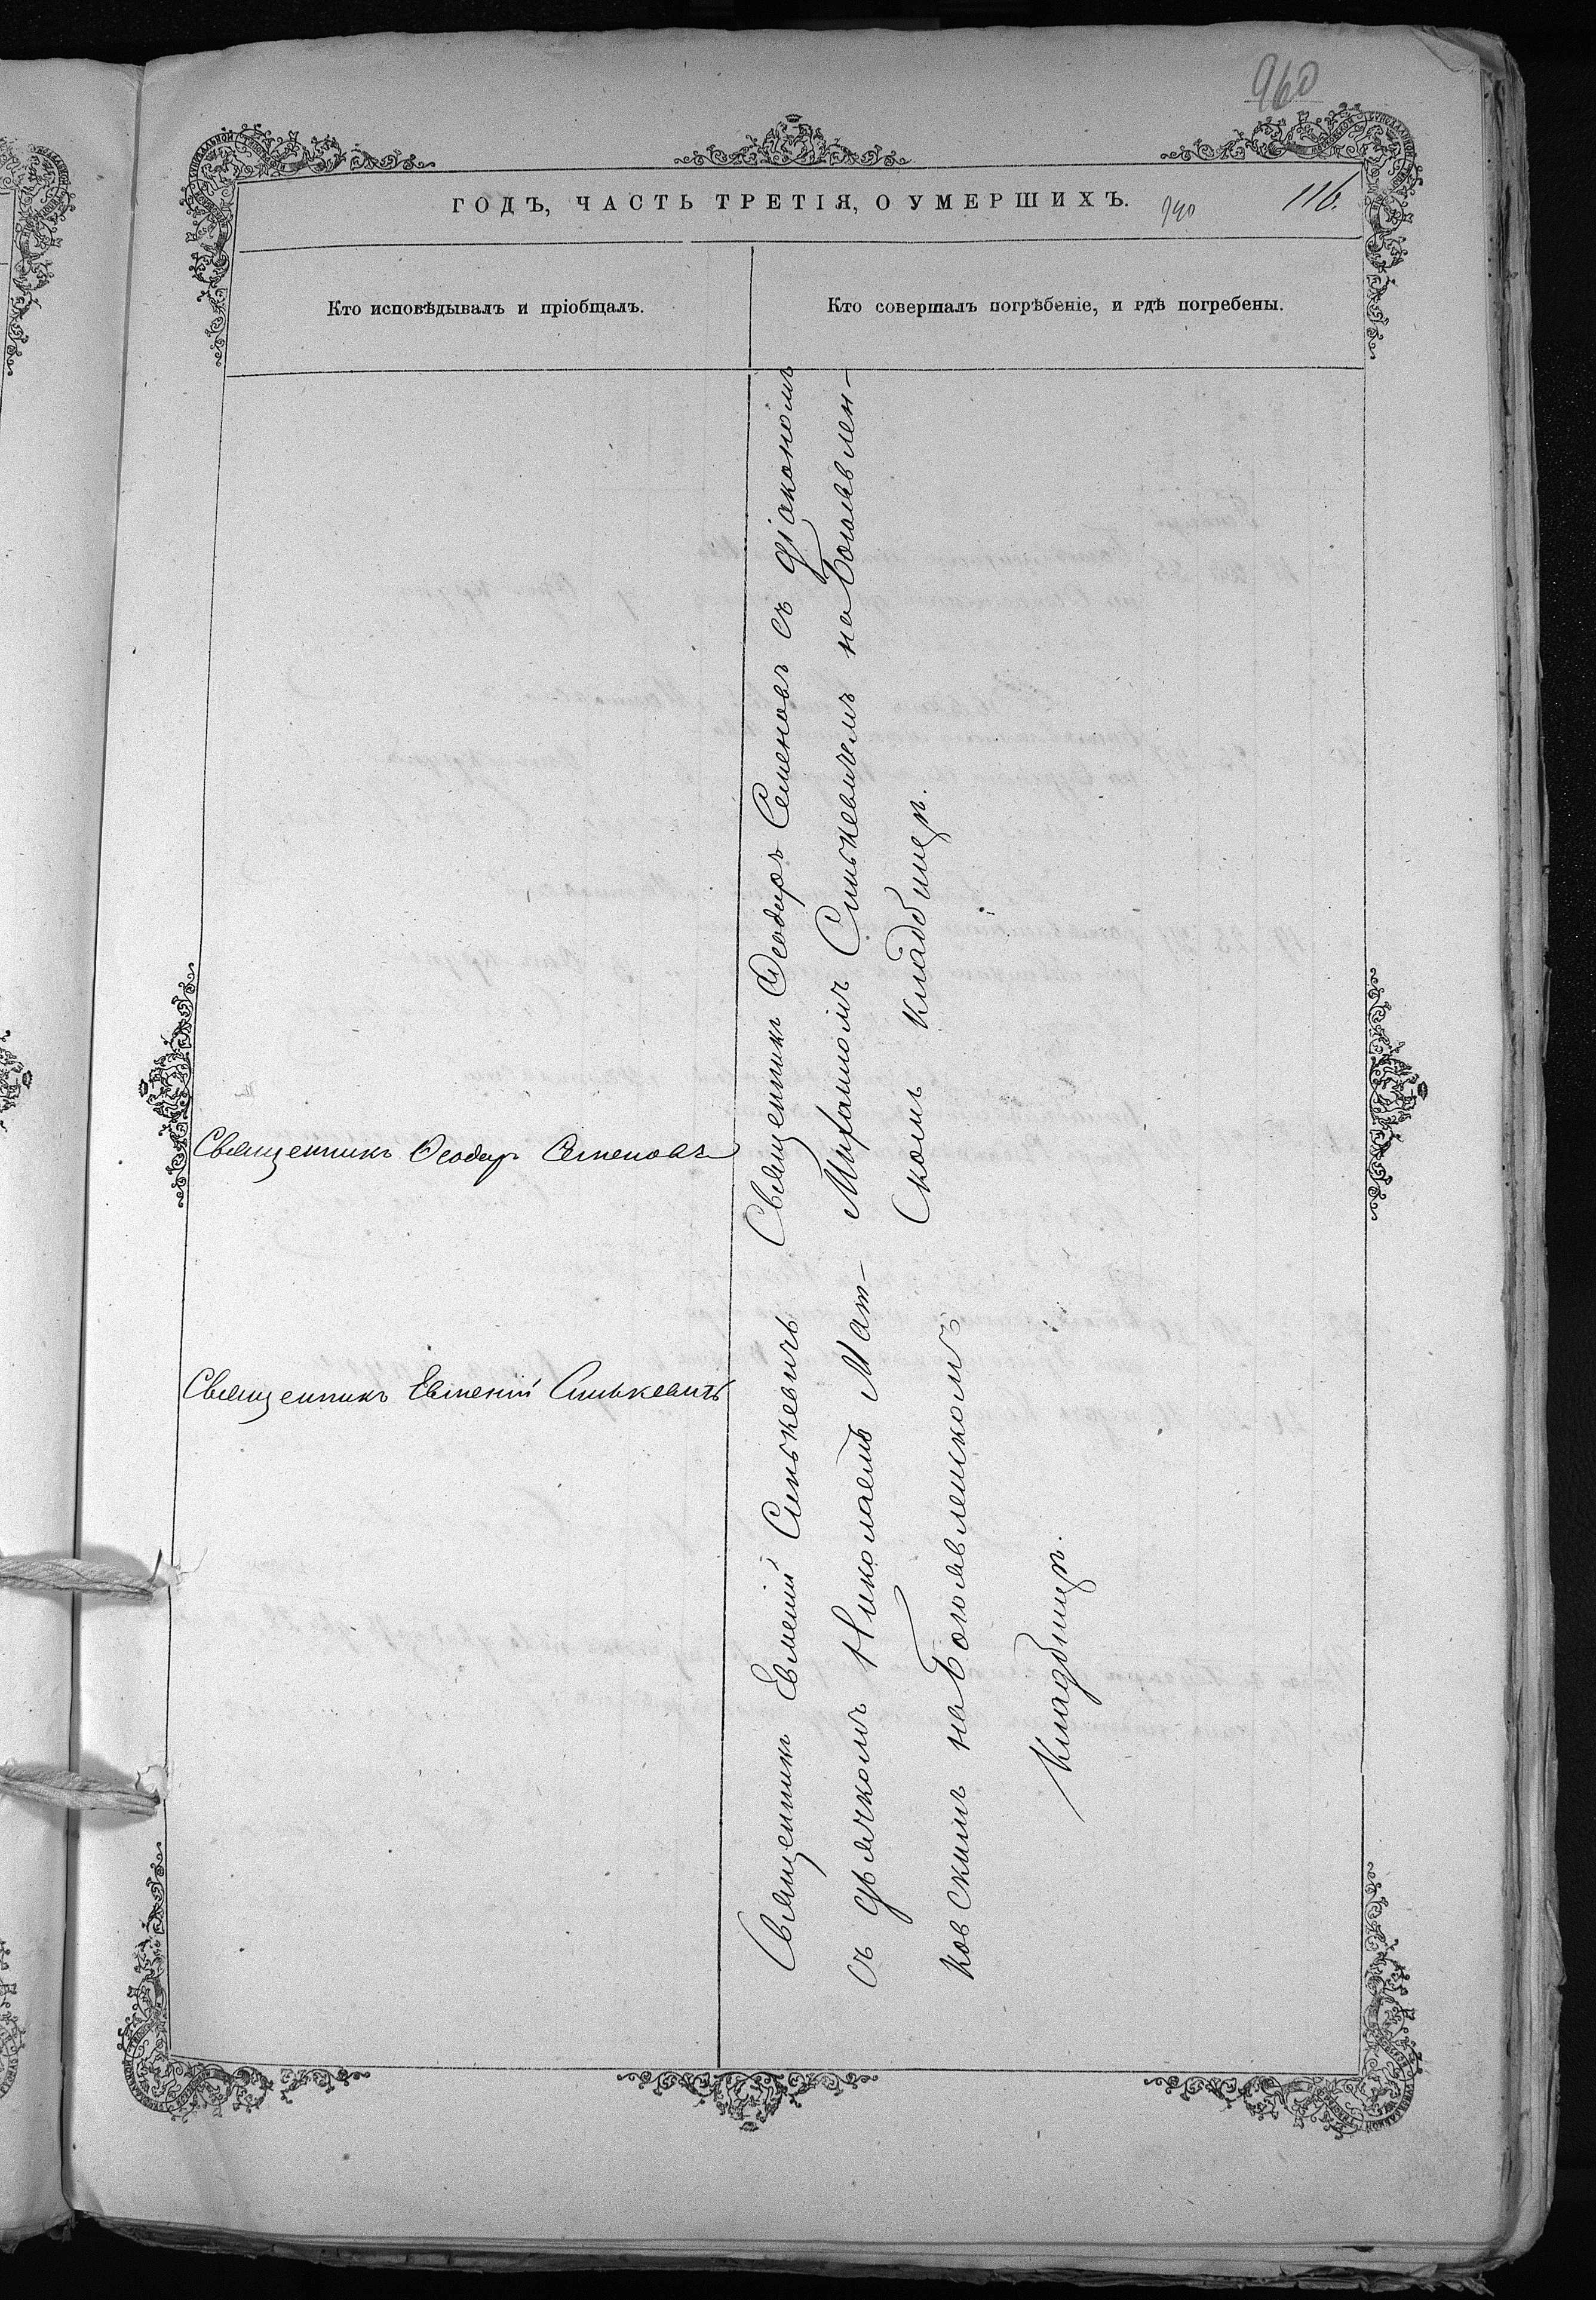 960
ГОДЪ, ЧАСТЬ ТРЕТІЯ, О УМЕРШИХЪ.
940
116.
Кто исповѣдывалъ и пріобщалъ.
Кто совершалъ погрѣбеніе, и гдѣ погребены.
Священникъ Ѳеодоръ Семеновъ
Священникъ Ѳеодоръ Семеновъ съ діакономъ
Михаиломъ Синькевичемъ на Богоявлен-
скомъ кладбищѣ.
Священникъ Евгеній Синькевичъ
Священникъ Евгеній Синькевичъ
съ дьячкомъ Николаемъ Мат-
ковскимъ на Богоявленскомъ
кладбищѣ.